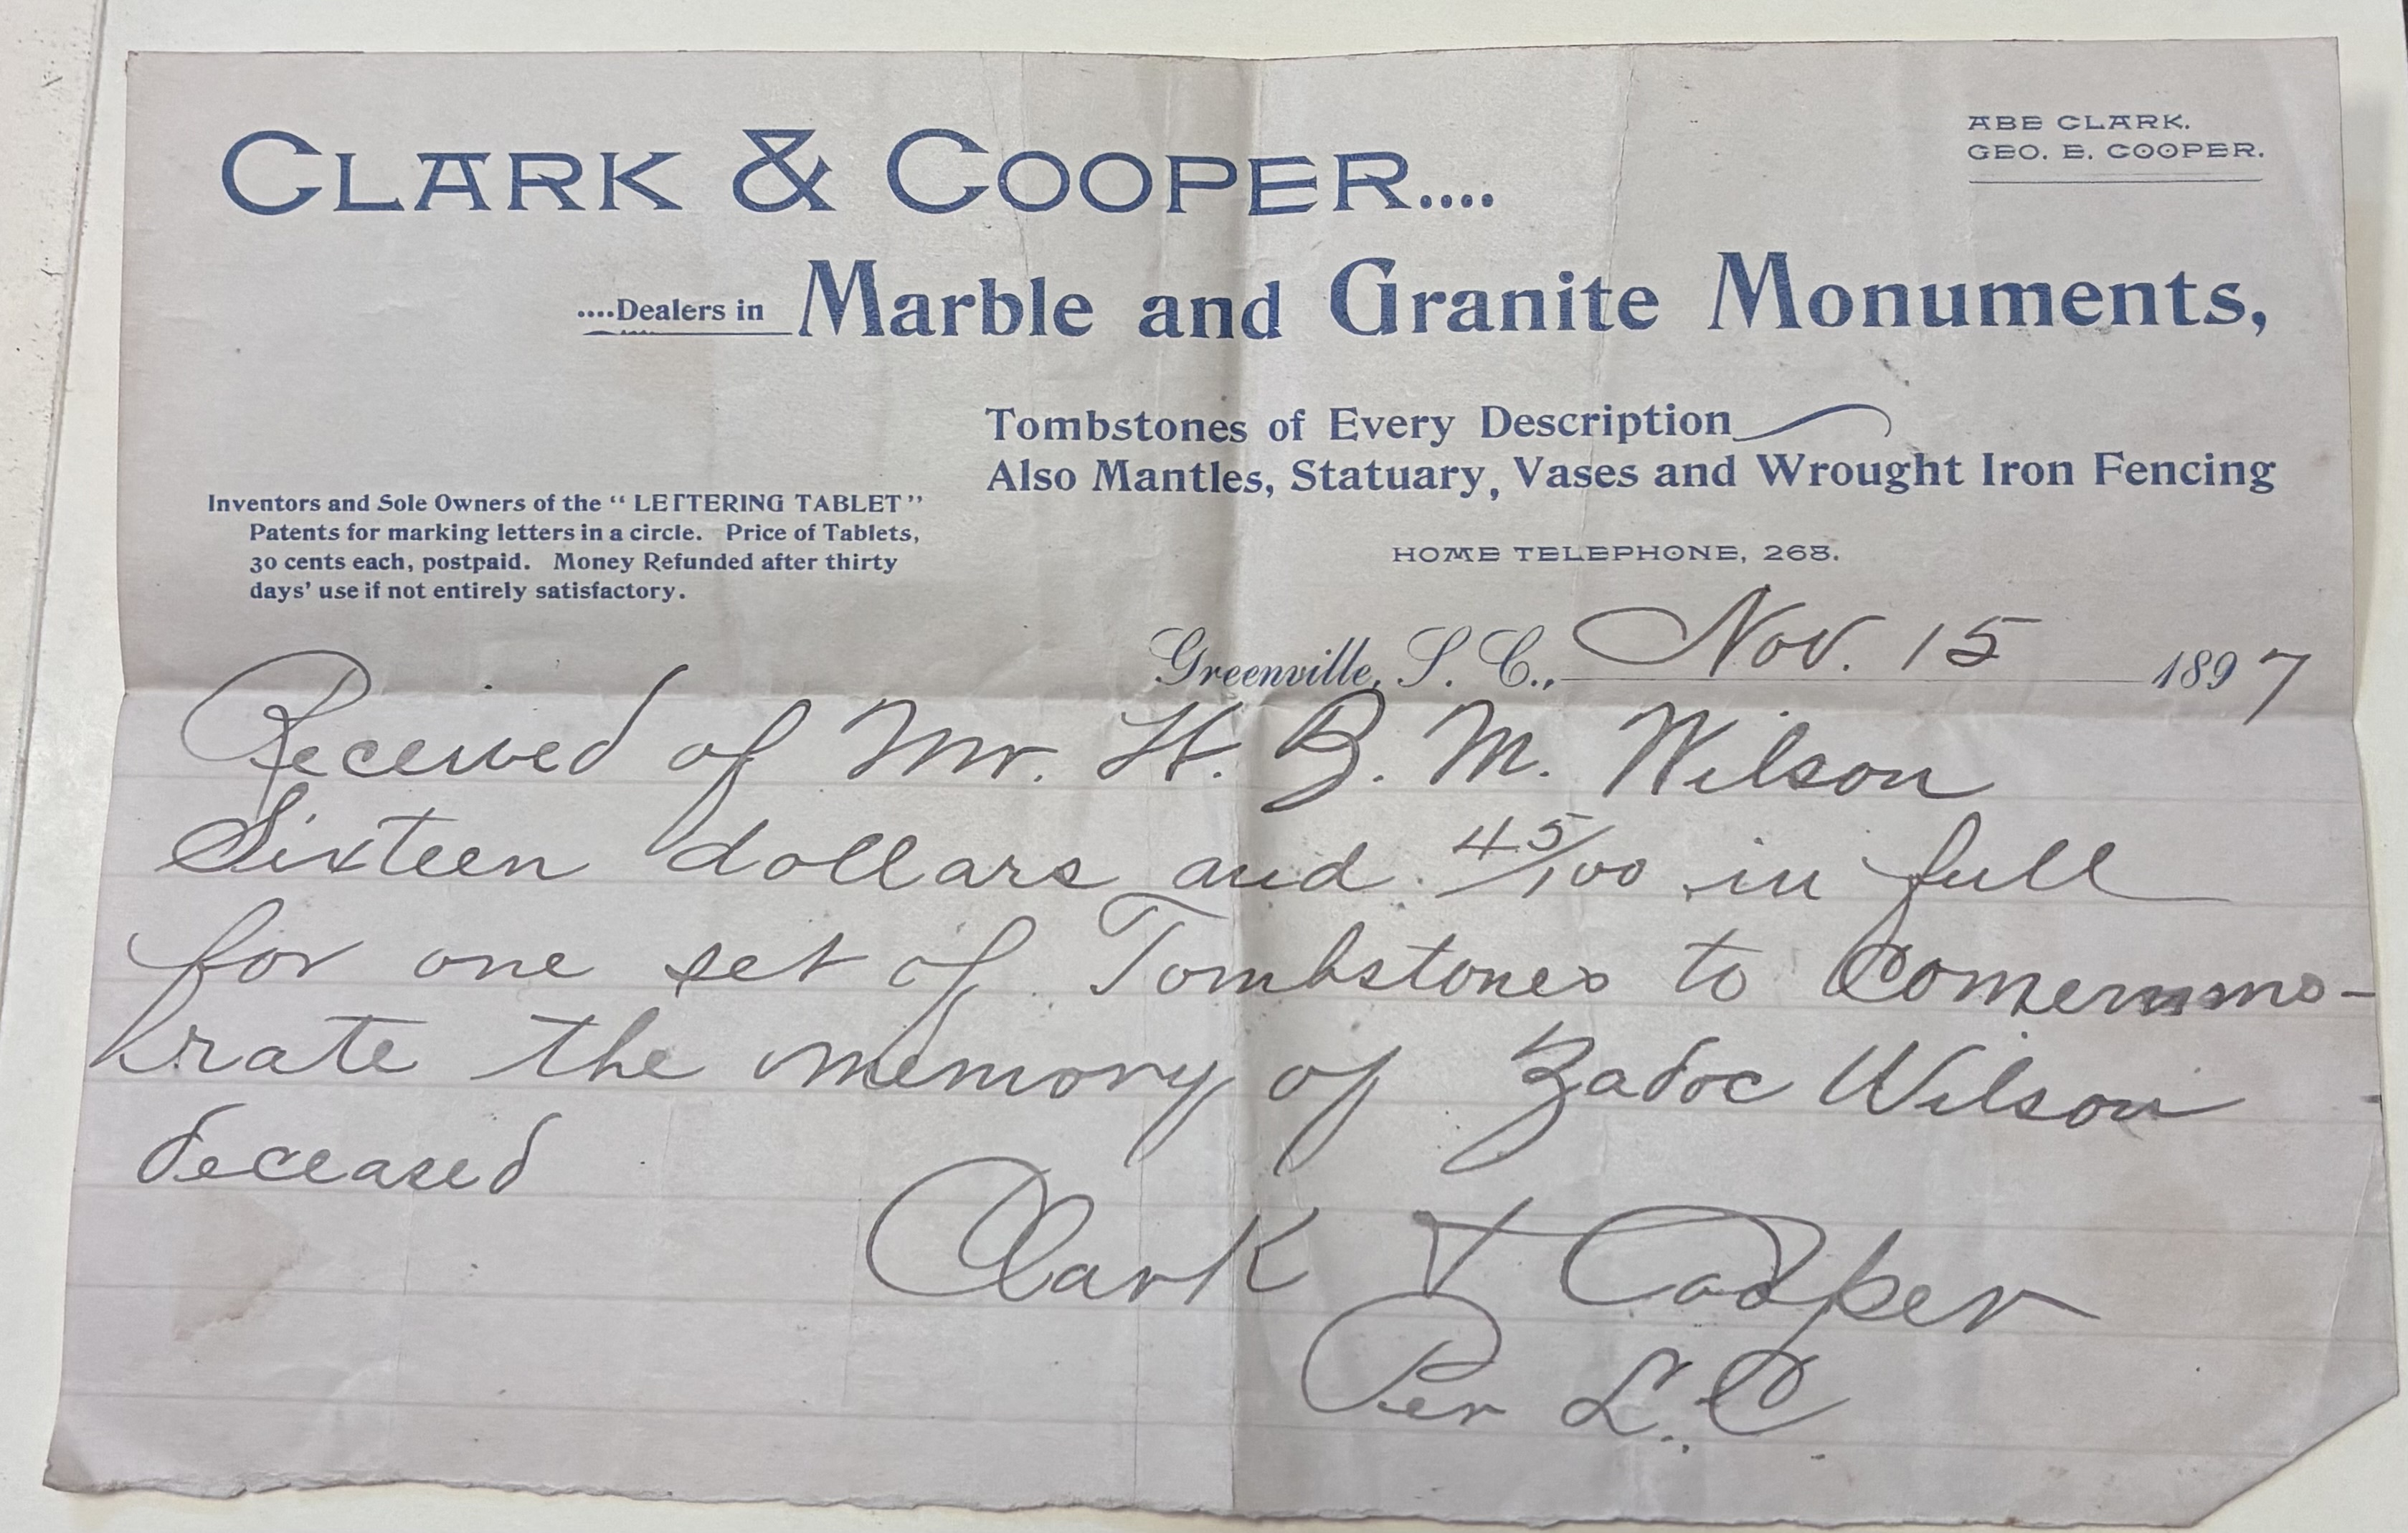 CLARK & COOPER....
ABE CLARK.
GEO. E. COOPER.
....Dealers in Marble and Granite Monuments,
Tombstones of Every Description
Also Mantles, Statuary, Vases and Wrought Iron Fencing
Inventors and Sole Owners of the "LETTERING TABLET"
Patents for marking letters in a circle. Price of Tablets,
30 cents each, postpaid. Money Refunded after thirty
days' use if not entirely satisfactory.
HOME TELEPHONE, 268.
Greenville, S. C., Nov. 15 1897
Received of Mr. H. B. M. Wilson
Sixteen dollars and 45/100 in full
for one set of Tombstones to Comemmo-
rate the memory of Zadoc Wilson
deceased
Clark & Cooper
Per L. C.